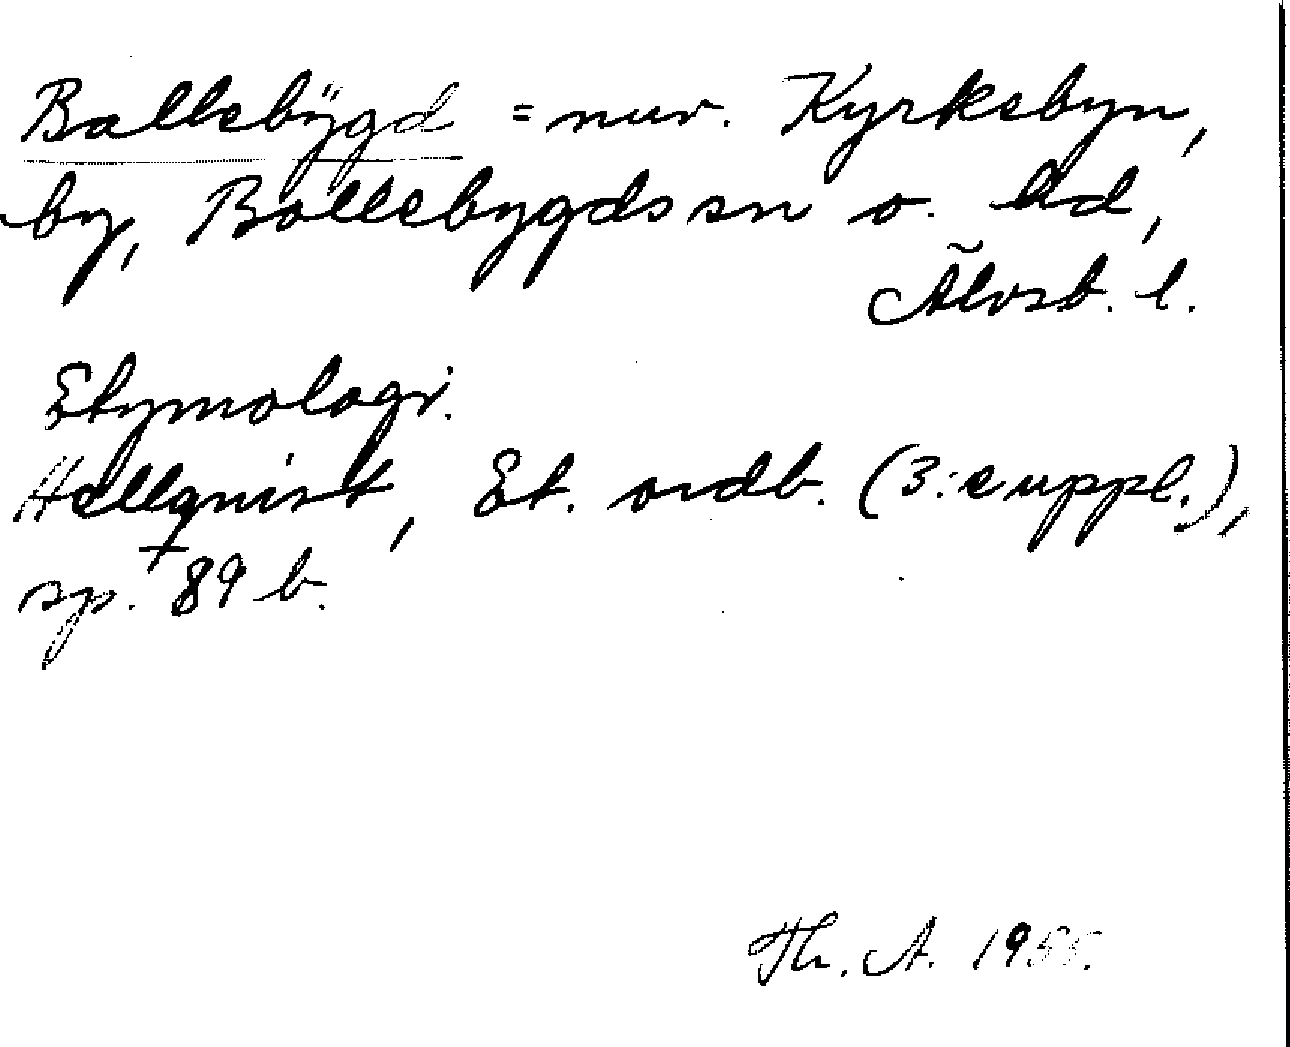 Bollebygd = nuv. Kyrkebyn,
by, Bollebygds sn o. hd,
Älvsb. l.
Etymologi.
Hellquist, Et. ordb. (3:e uppl.),
sp. 89 b.
Th. A. 1955.